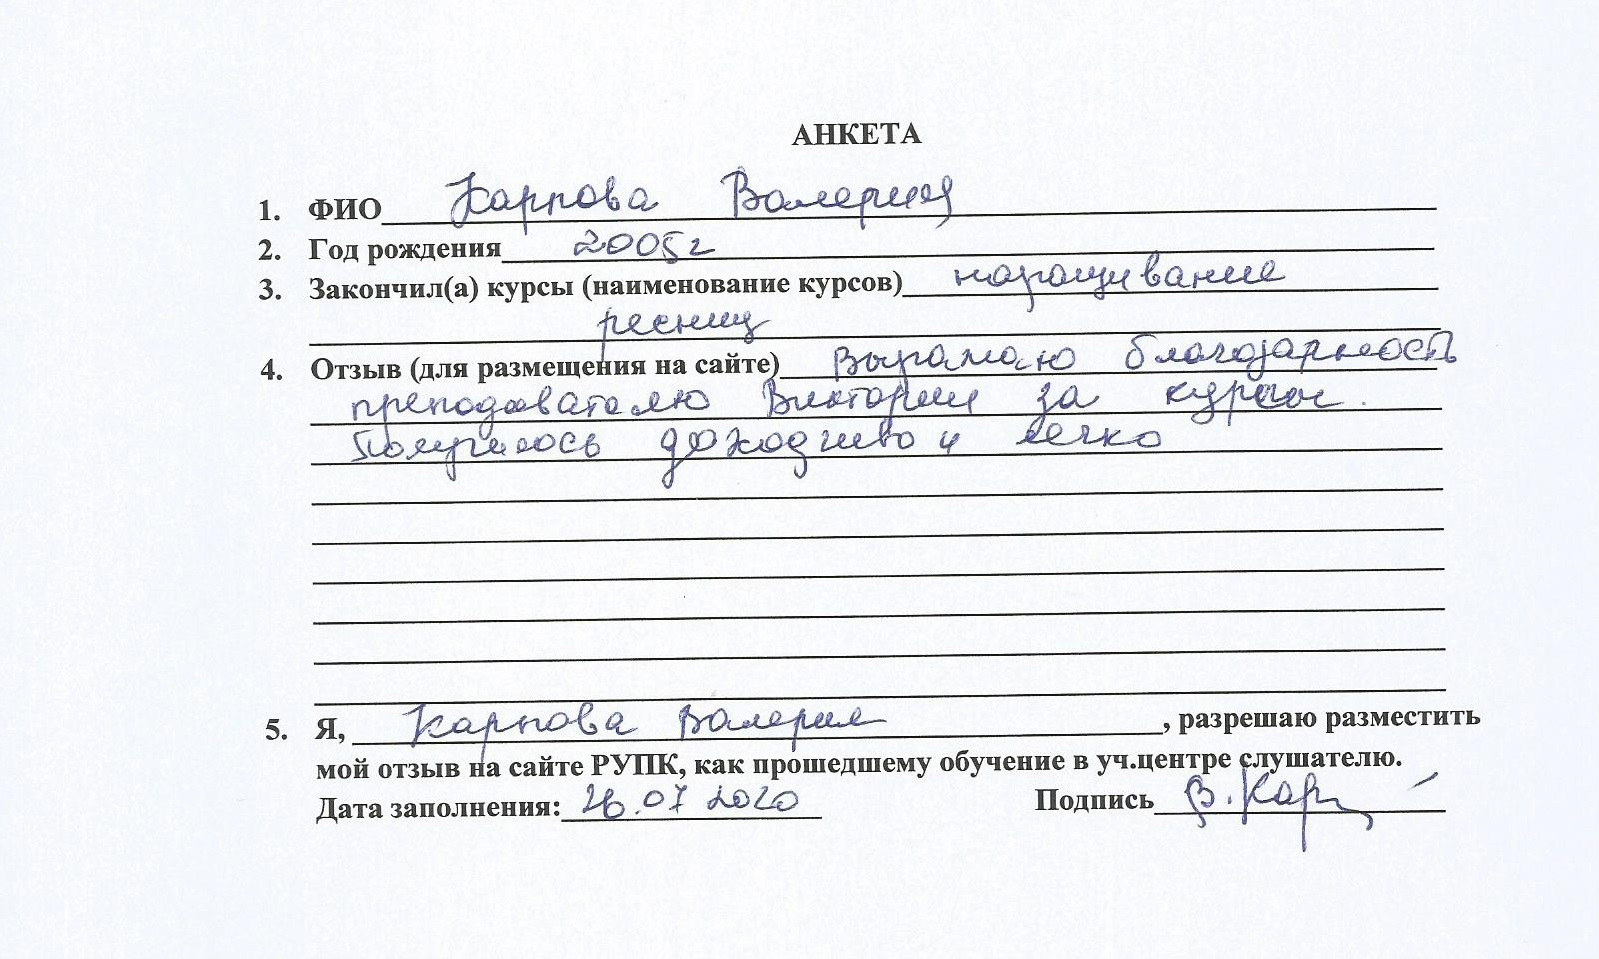 АНКЕТА
1. ФИО Карпова Валерия
2. Год рождения 2005г
3. Закончил(а) курсы (наименование курсов) наращивание
ресниц
4. Отзыв (для размещения на сайте) Выражаю благодарность
преподавателю Виктории за курсы.
Получилось доходчиво и легко
5. Я, Карпова Валерия, разрешаю разместить
мой отзыв на сайте РУПК, как прошедшему обучение в уч.центре слушателю.
Дата заполнения: 26.07 2020 Подпись В. Карп